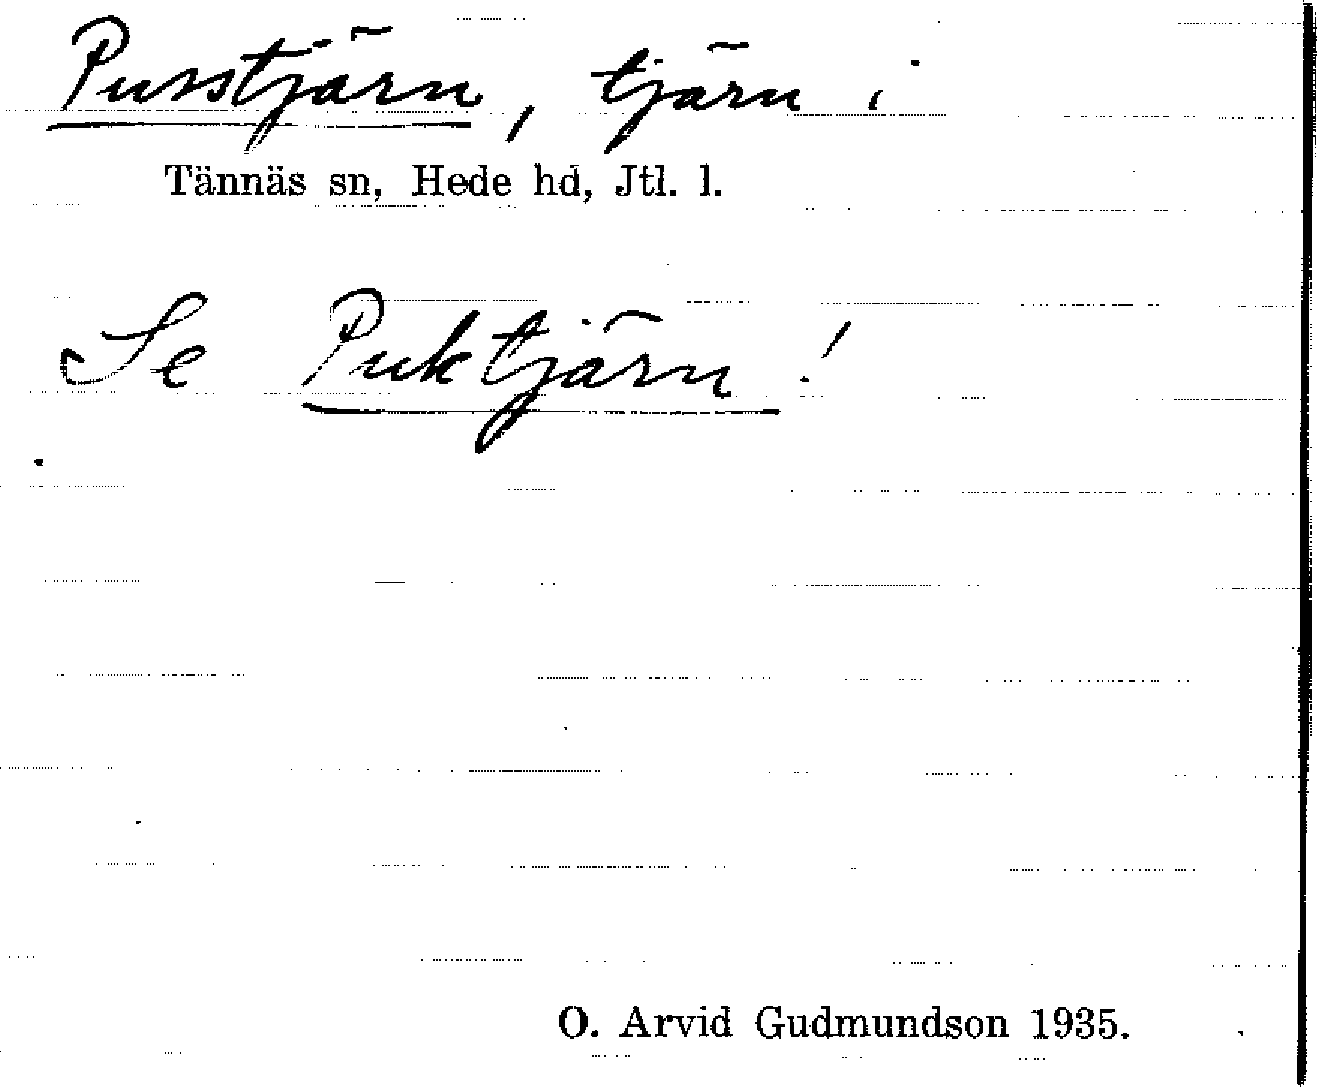 Pusstjärn, tjärn i
Tännäs sn, Hede hd, Jtl. l.
Se Puktjärn!
O. Arvid Gudmundson 1935.